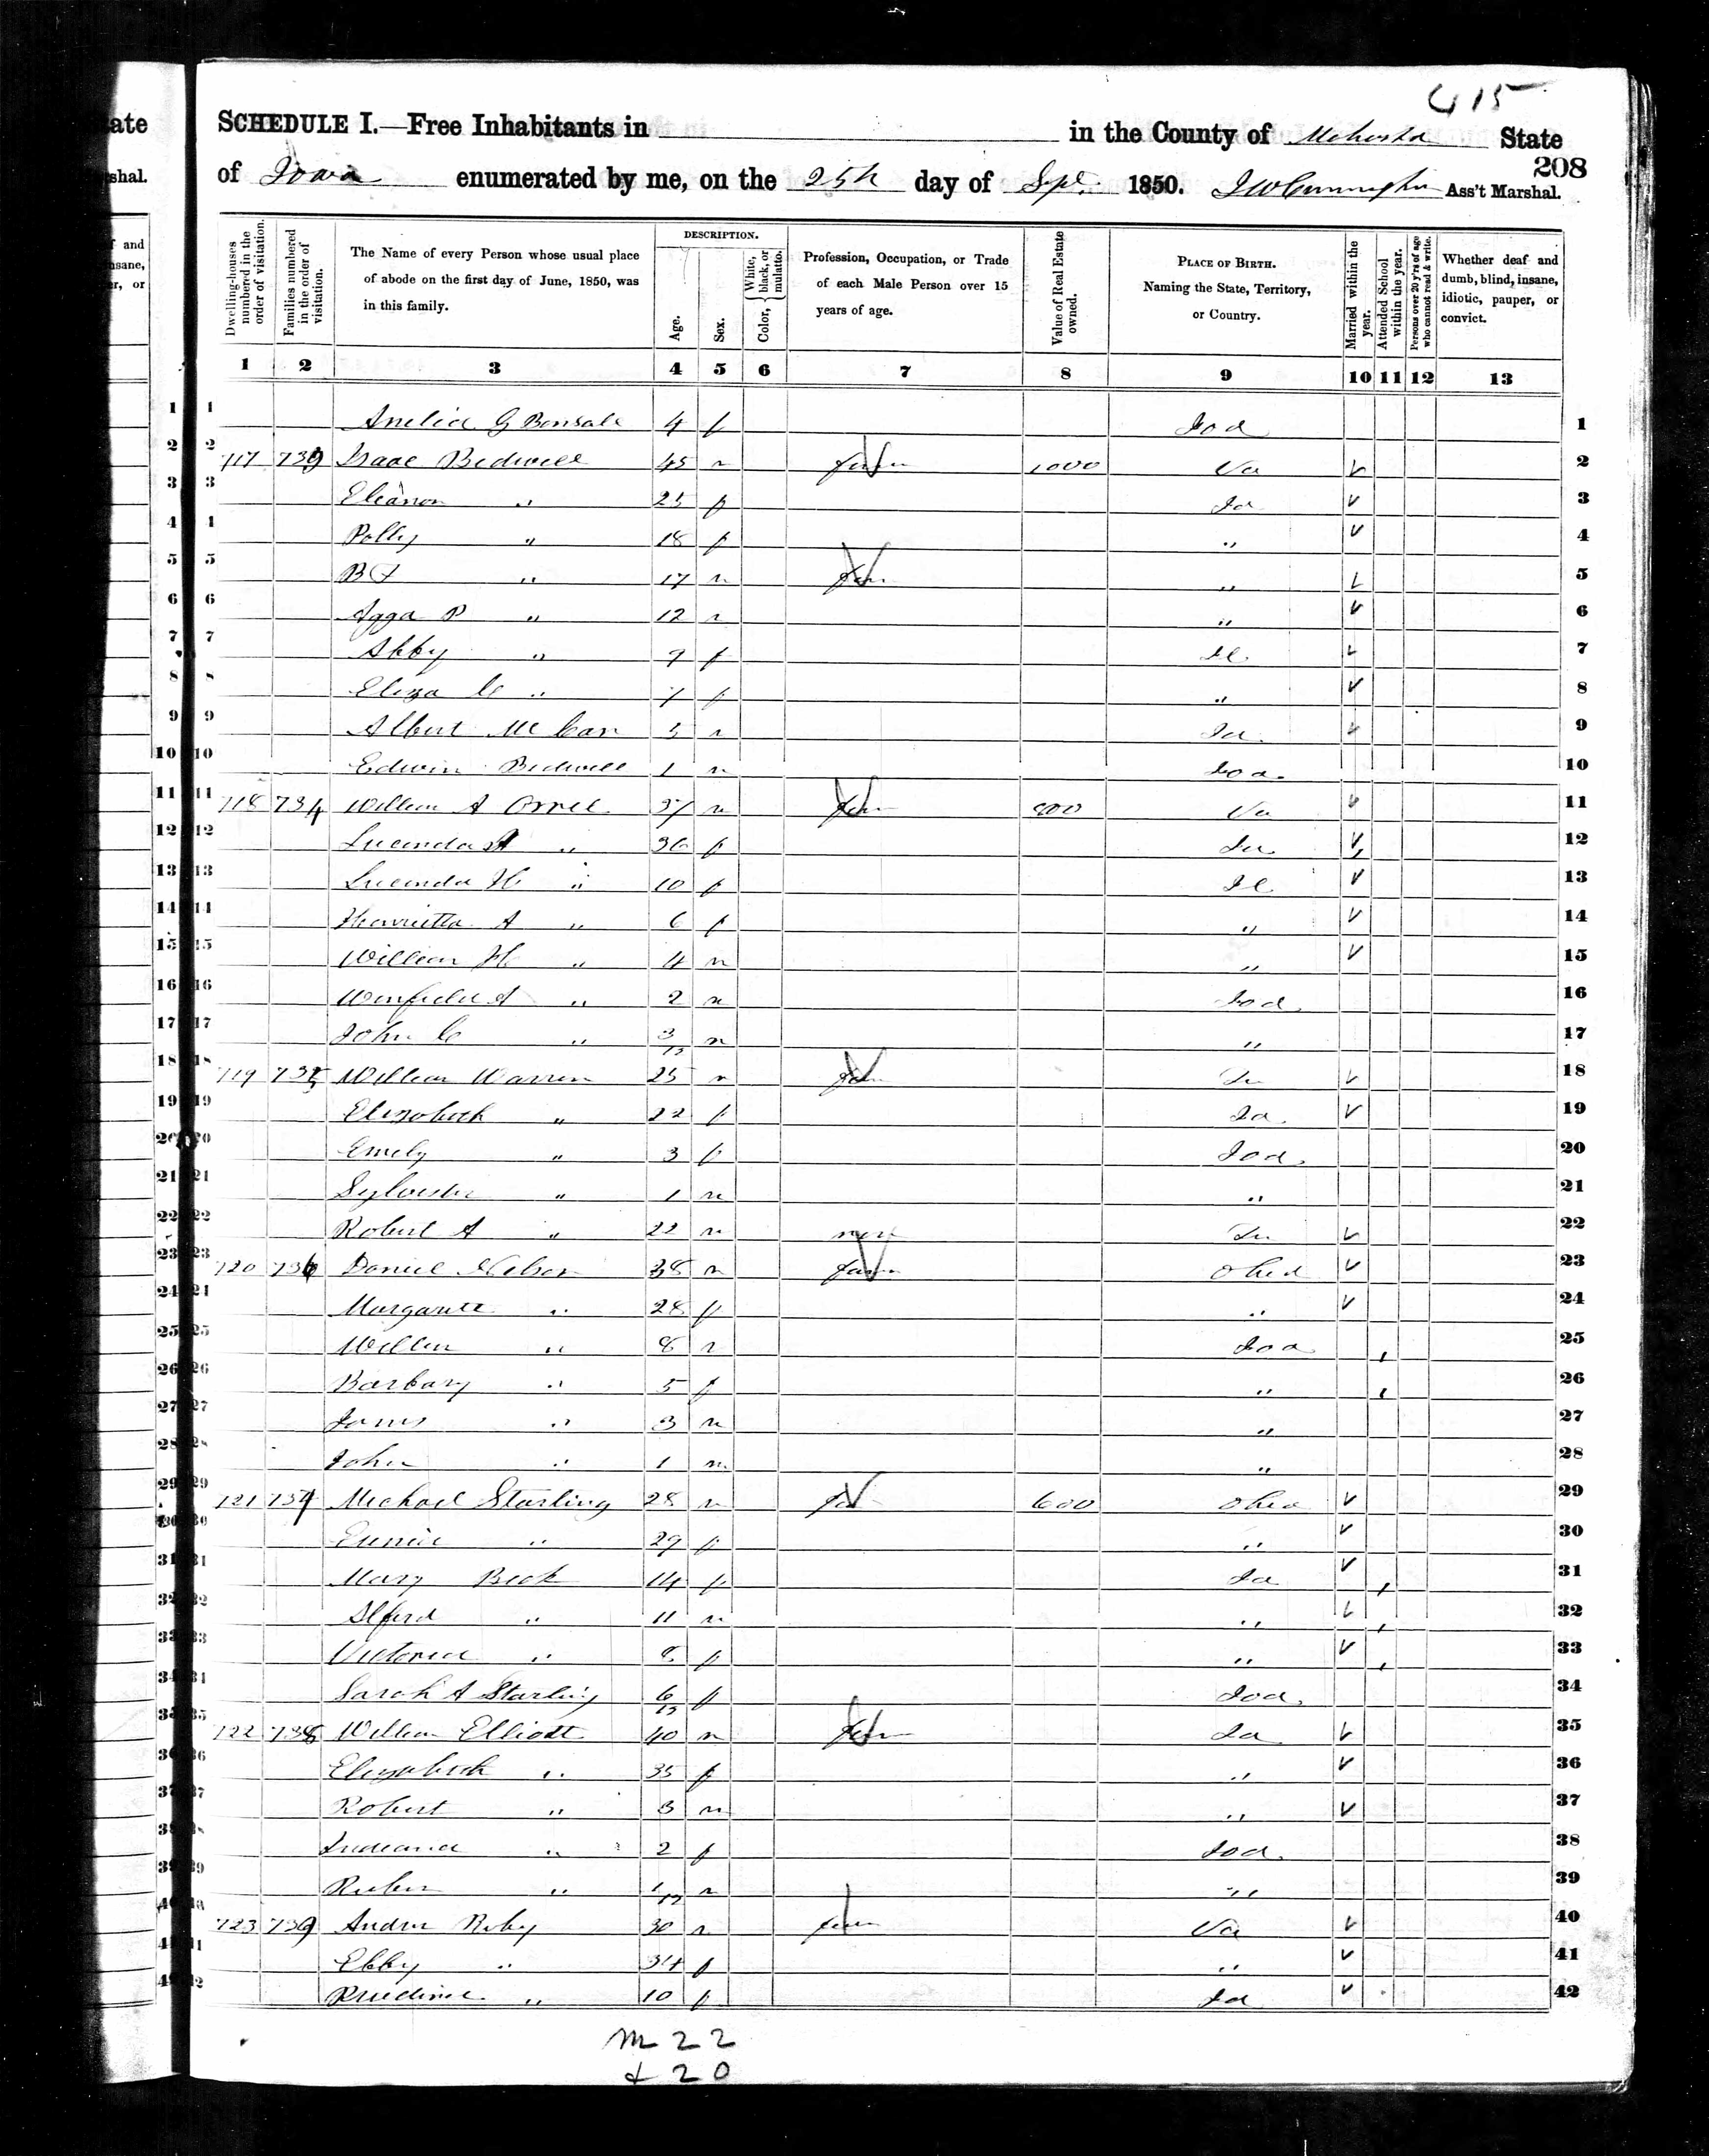 415
SCHEDULE I.—Free Inhabitants in in the County of Mahaska State
208
of Iowa enumerated by me, on the 25th day of Sept. 1850. J W Cunningham Ass't Marshal.
Dwelling-houses numbered in the order of visitation.
Families numbered in the order of visitation.
The Name of every Person whose usual place of abode on the first day of June, 1850, was in this family.
DESCRIPTION.
Age.
Sex.
Color, { White, black, or mulatto.
Profession, Occupation, or Trade of each Male Person over 15 years of age.
Value of Real Estate owned.
PLACE OF BIRTH. Naming the State, Territory, or Country.
Married within the year.
Attended School within the year.
Persons over 20 y'rs of age who cannot read & write.
Whether deaf and dumb, blind, insane, idiotic, pauper, or convict.
1 2 3 4 5 6 7 8 9 10 11 12 13
1 Amelia G Bonsale 4 f Ioa 1
2 717 733 Isaac Bedwell 45 m farm 1000 Va 2
3 Eleanor " 25 f Ia 3
4 Polly " 18 f " 4
5 B F " 17 m farm " 5
6 P " 12 m " 6
7 Abby " 9 f Il. 7
8 Eliza C " 7 f " 8
9 Albert McCan 5 m Ia. 9
10 Edwin Bedwell 1 m Ioa. 10
11 718 734 William A Orvel 37 m farm 800 Va 11
12 Lucinda A " 36 f 12
13 Lucinda H " 10 f Il 13
14 Henrietta A " 6 f " 14
15 William H " 4 m " 15
16 Winfield A " 2 m Ioa. 16
17 John C " 3/12 m " 17
18 719 735 William Warren 25 m farm 18
19 Elizabeth " 22 f Ia. 19
20 Emely " 3 f Ioa. 20
21 Sylvester " 1 m " 21
22 Robert A " 22 m 22
23 720 736 Daniel Nelson 38 m farm Ohio 23
24 Margaret " 28 f " 24
25 William " 8 m Ioa 25
26 Barbary " 5 f " 26
27 James " 3 m " 27
28 John " 1 m " 28
29 721 737 Michael Starling 28 m far 600 Ohio 29
30 Eunice " 29 f " 30
31 Mary Beck 14 f Ia 31
32 Alferd " 11 m " 32
33 Victoria " 8 f " 33
34 Sarah A Starling 6/12 f Ioa. 34
35 722 738 William Elliott 40 m farm Ia 35
36 Elizabeth " 35 f " 36
37 Robert " 3 m " 37
38 Indiana " 2 f Ioa. 38
39 Ruben " 1/12 m " 39
40 723 739 Andrew 30 m farm Va 40
41 Ebby " 34 f " 41
42 " 10 f Ia 42
m 22
f 20